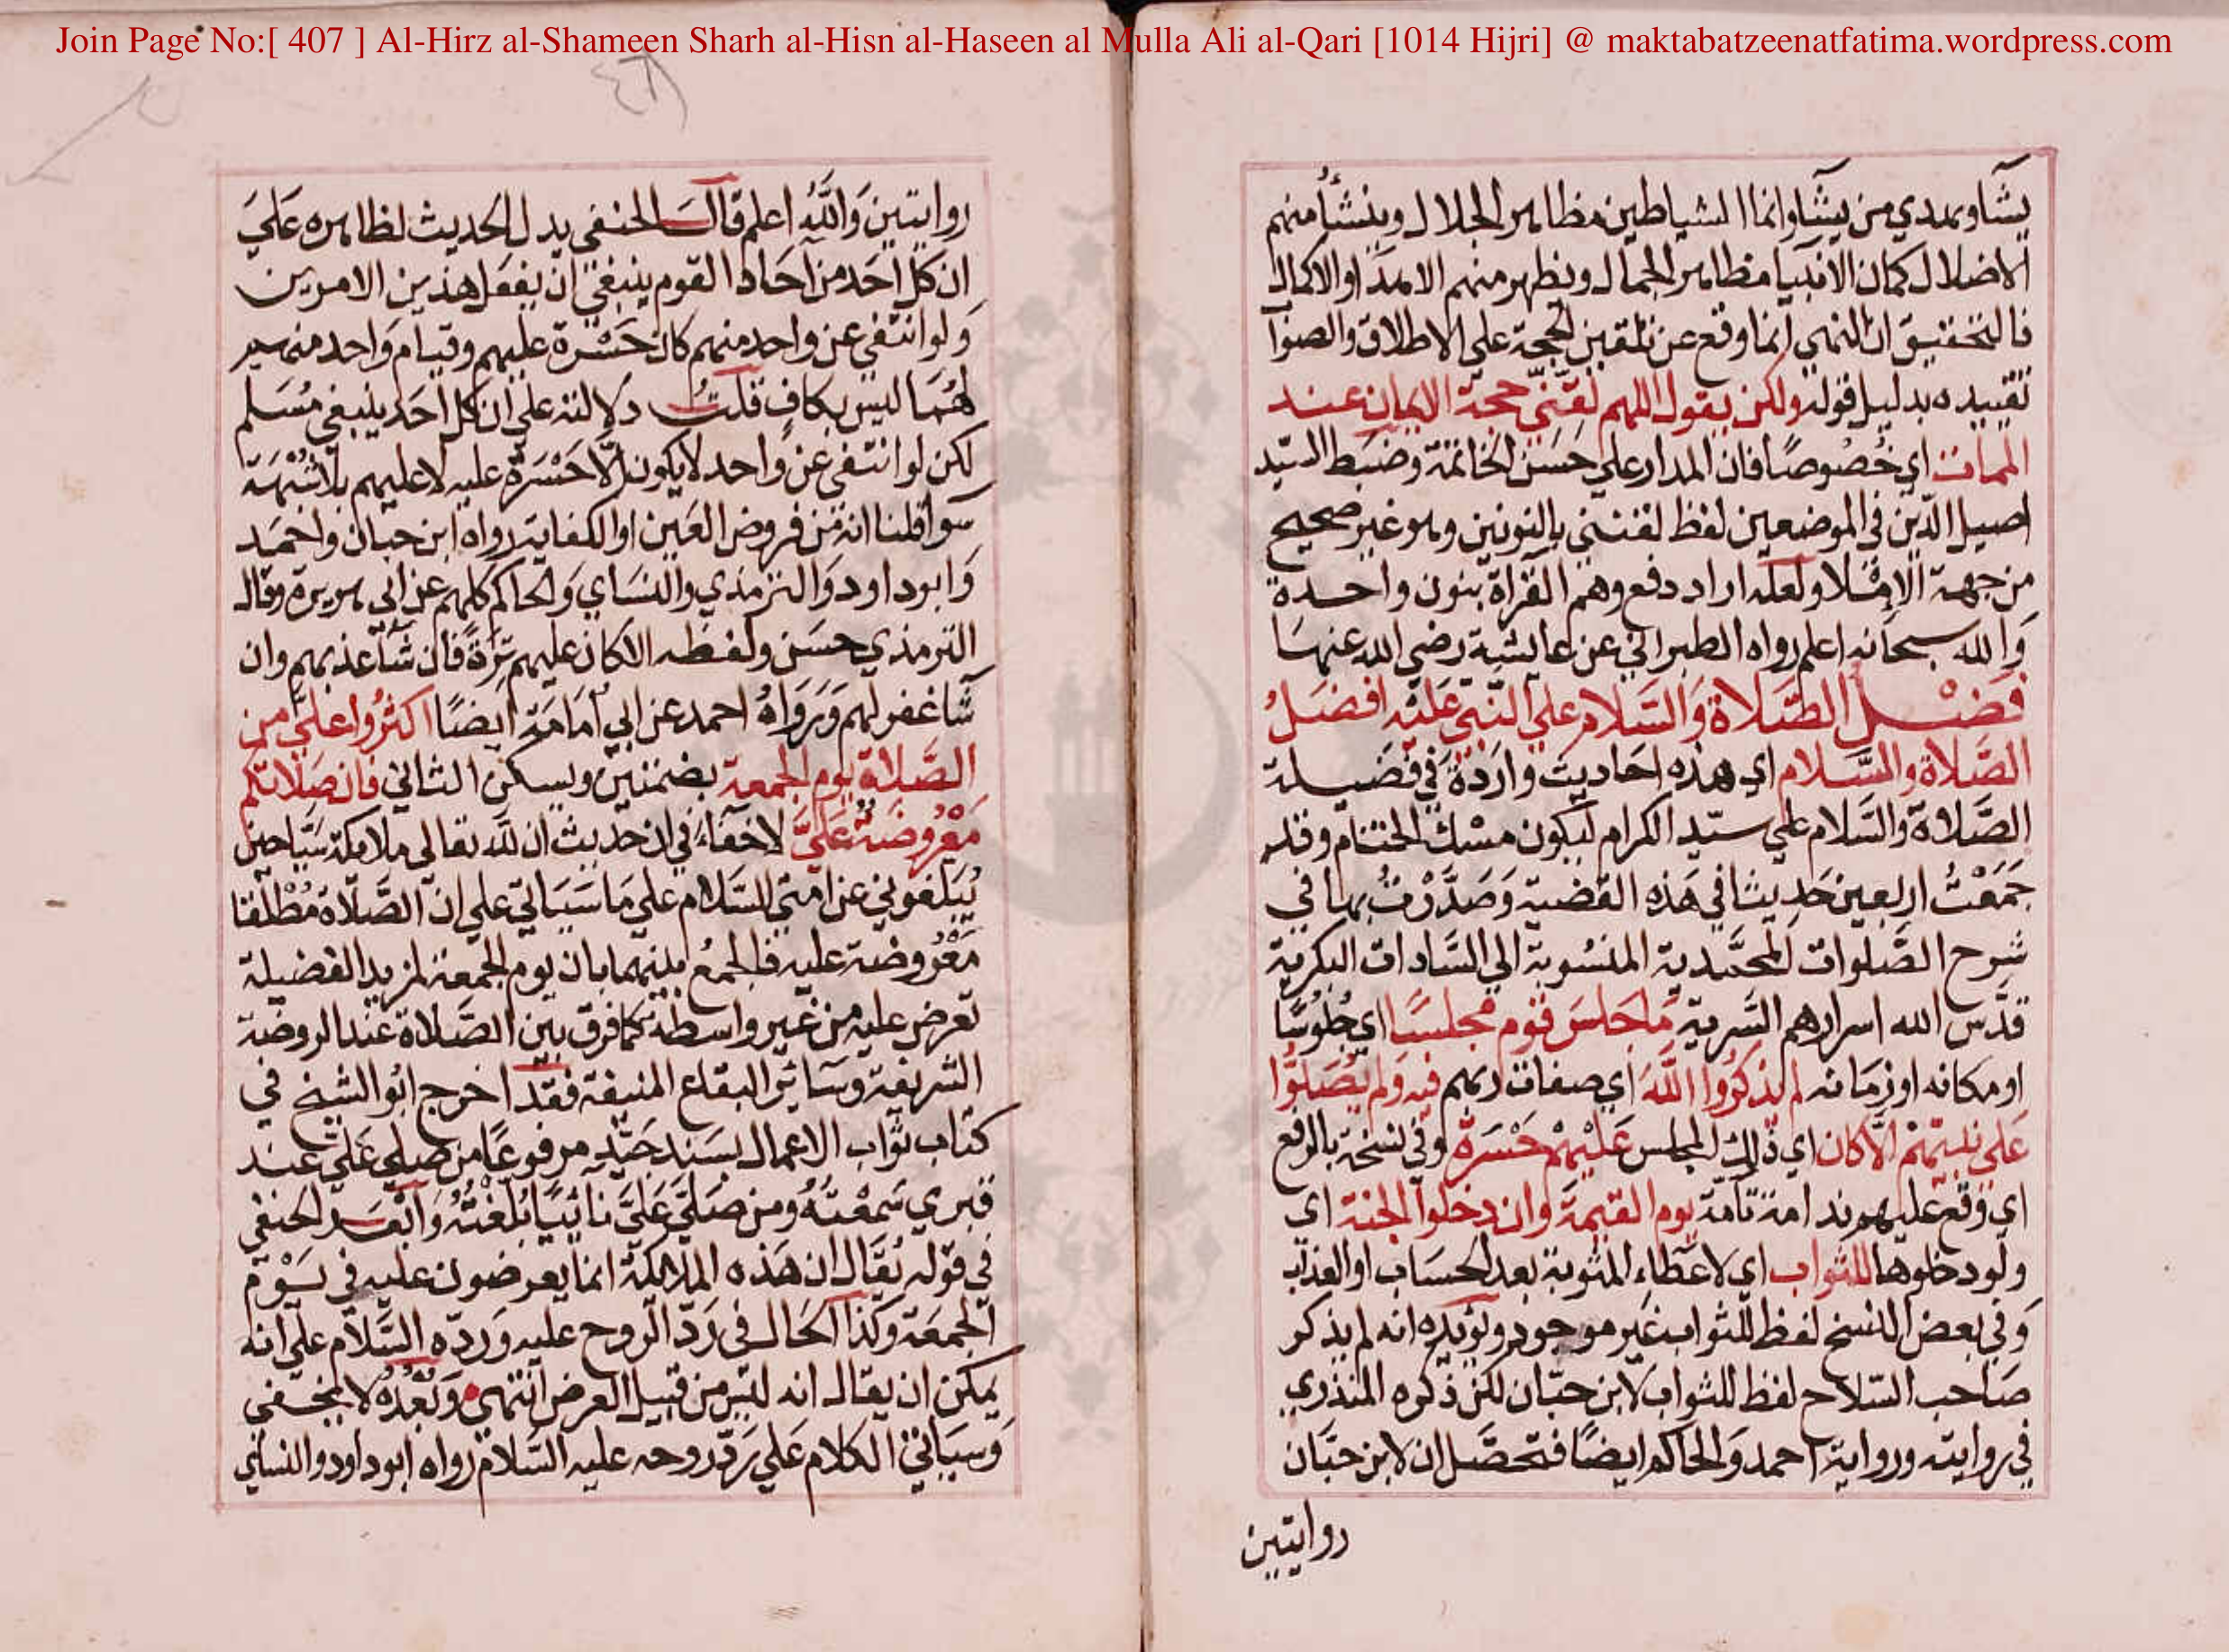 Join Page No:[ 407 ] Al-Hirz al-Shameen Sharh al-Hisn al-Haseen al Mulla Ali al-Qari [1014 Hijri] @ maktabatzeenatfatima.wordpress.com
يشآ ويهدي من يشآ وانما الشياطين مظاهر الجلال وينشأ منهم
الاضلال كمان الانبيا مظاهر الجمال ويظهر منهم الامداد والاكمال
فالتحقيق ان النهي انما وقع عن تلقين الحجة علي الاطلاق والصوآ
تقييده بدليل قوله ولكن يقول اللهم لقني حجة الايمان عند
الممات اي خصوصًا فان المدار علي حسن الخاتمة وضبط السيّد
اصيل الدّين في الموضعين لفظ لقننني بالنونين وهو غير صحيح
من جهة الاملا ولعله اراد دفع وهم القرآة بنون واحدة
وَالله سبحانه اعلم رواه الطبراني عن عايشة رضي الله عنها
فضل الصَّلاة وَالسَّلام علي النّبي عَليْه افضَلُ
الصَّلاة والسَّلام اي هذه احَاديث واردَة في فضيلة
الصَّلاة والسَّلام علي سيّد الكرام ليكون مسْك الختام وقد
جَمَعْتُ اربعين حَديثا في هَذه القضية وَصَدَّرْتُ بها في
شرح الصَّلوات المحمَّدية المنسُوبة الي السَّادات البكرية
قدَّس الله اسرارهم السَّرية مَا جَلسَ قوم مجلسًا اي جُلوسًا
او مكانه او زمَانه لم يذكرُوا اللَّهَ اي صفات ربهم فيه وَلم يُصَلوُّا
عَلي نبيّهمْ الّا كان اي ذلك المجلس عَليْهمْ حَسْرَة وفي نسخة بالرفع
اي وقع عليهم ندامة تآمة يوم القيمَة وان دخلوا الجنة اي
ولو دخلوها للثواب اي لاعطاءِ المثوبة بعد الحسَاب او العذاب
وَفي بعض النسخ لفظ للثواب غير موجود ويؤيده انه لم يذكر
صَاحب السّلاح لفظ للثواب لابن حبّان لكن ذكره المنذري
في روايته ورواية احمد وَالحاكم ايضًا فتحصَّل ان لابن حبَّان
روايتين
روايتين وَاللَّهُ اعلم قالَ الحنفي يدل الحديث لظاهره عَليَ
ان كل احَد من آحَاد القوم ينبغي ان يفعَل هذين الامرين
وَلو انتفي عن واحد منهم كان حَسْرة عليهم وقيام وَاحد منهم
لهُمَا ليس بكافٍ قلتُ دلالته علي ان كل احَد ينبغي مُسَلم
لكن لو انتفي عن واحد لا يكون الّا حَسْرَة عليه لا عليهم بلا شُبْهَة
سَوآ قلنا انه من فروض العَين او الكفاية رواه ابن حبان واحمَد
وَابو داود وَالترمذي والنسَاي وَالحاكم كلهم عن ابي هريرة وقال
الترمذي حسَن ولفظه الا كان عليهم تِرَةً فان شآ عذبهم وان
شا غفر لهم وَرَوَاهُ احمد عن ابي اُمَامَة ايضًا اكثرُوا عليَّ من
الصَّلاة يوم الجمعة بضمتين ويسكن الثاني فان صَلاتكم
مَعْرُوضَة عَليَّ لا خفَاءَ في ان حديث ان لله تعالي ملايكة سَيّاحين
يُبَلغوني عن امتي السَّلام علي مَا سَيَاتي علي ان الصَّلاة مُطْلقا
مَعْرُوضة عليه فالجمعُ بينهما بان يوم الجمعة لمزيد الفضيلة
تعرض عليه من غير واسطة كما فرق بين الصَّلاة عند الروضة
الشريفة وسَائر البقاع المنيفة فقد اخرج ابُو الشيخ في
كتاب ثوَاب الاعمال بسَند جَيّد مرفوعًا من صَلي عَليّ عند
قبري سَمعْتهُ ومن صَلّي عَليَّ نآئيًا بُلغْتُهُ وَابعَد الحنفي
في قوله يُقَال ان هَذه الملايكة انما يعرضون عليه في يَوْم
الجمعَة وكذا الحَال في رَدّ الروح عليه وَردّه السَّلام علي انه
يمكن ان يقال انه ليسَ من قبيل العرض انتهي وَبُعْدُهُ لا يخفي
وَسيَاتي الكلام عَلي رَدّ روحه عليه السَّلام رواه ابو داود والنساي